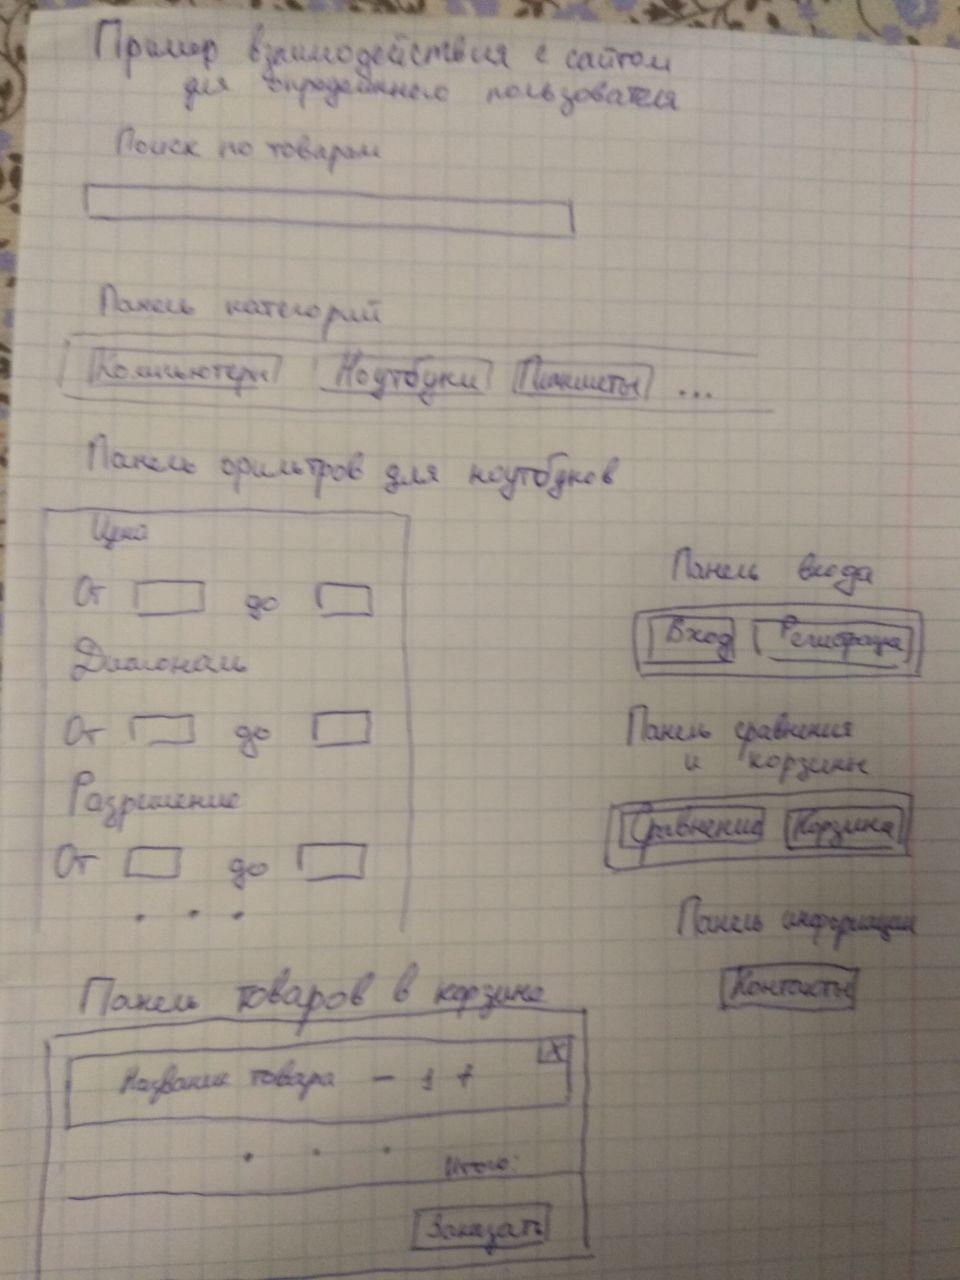 Пример взаимодействия с сайтом
для пользователя
Поиск по товарам
Панель категорий
Компьютеры Ноутбуки Планшеты ...
Панель фильтров для ноутбуков
Цена
От до
Диагональ
От до
Разрешение
От до
. . .
Панель входа
Вход Регистрация
Панель сравнения
и корзины
Сравнение Корзина
Панель информации
Контакты
Панель товаров в корзине
X
Название товара - 1 +
. . .
Итого:
Заказать